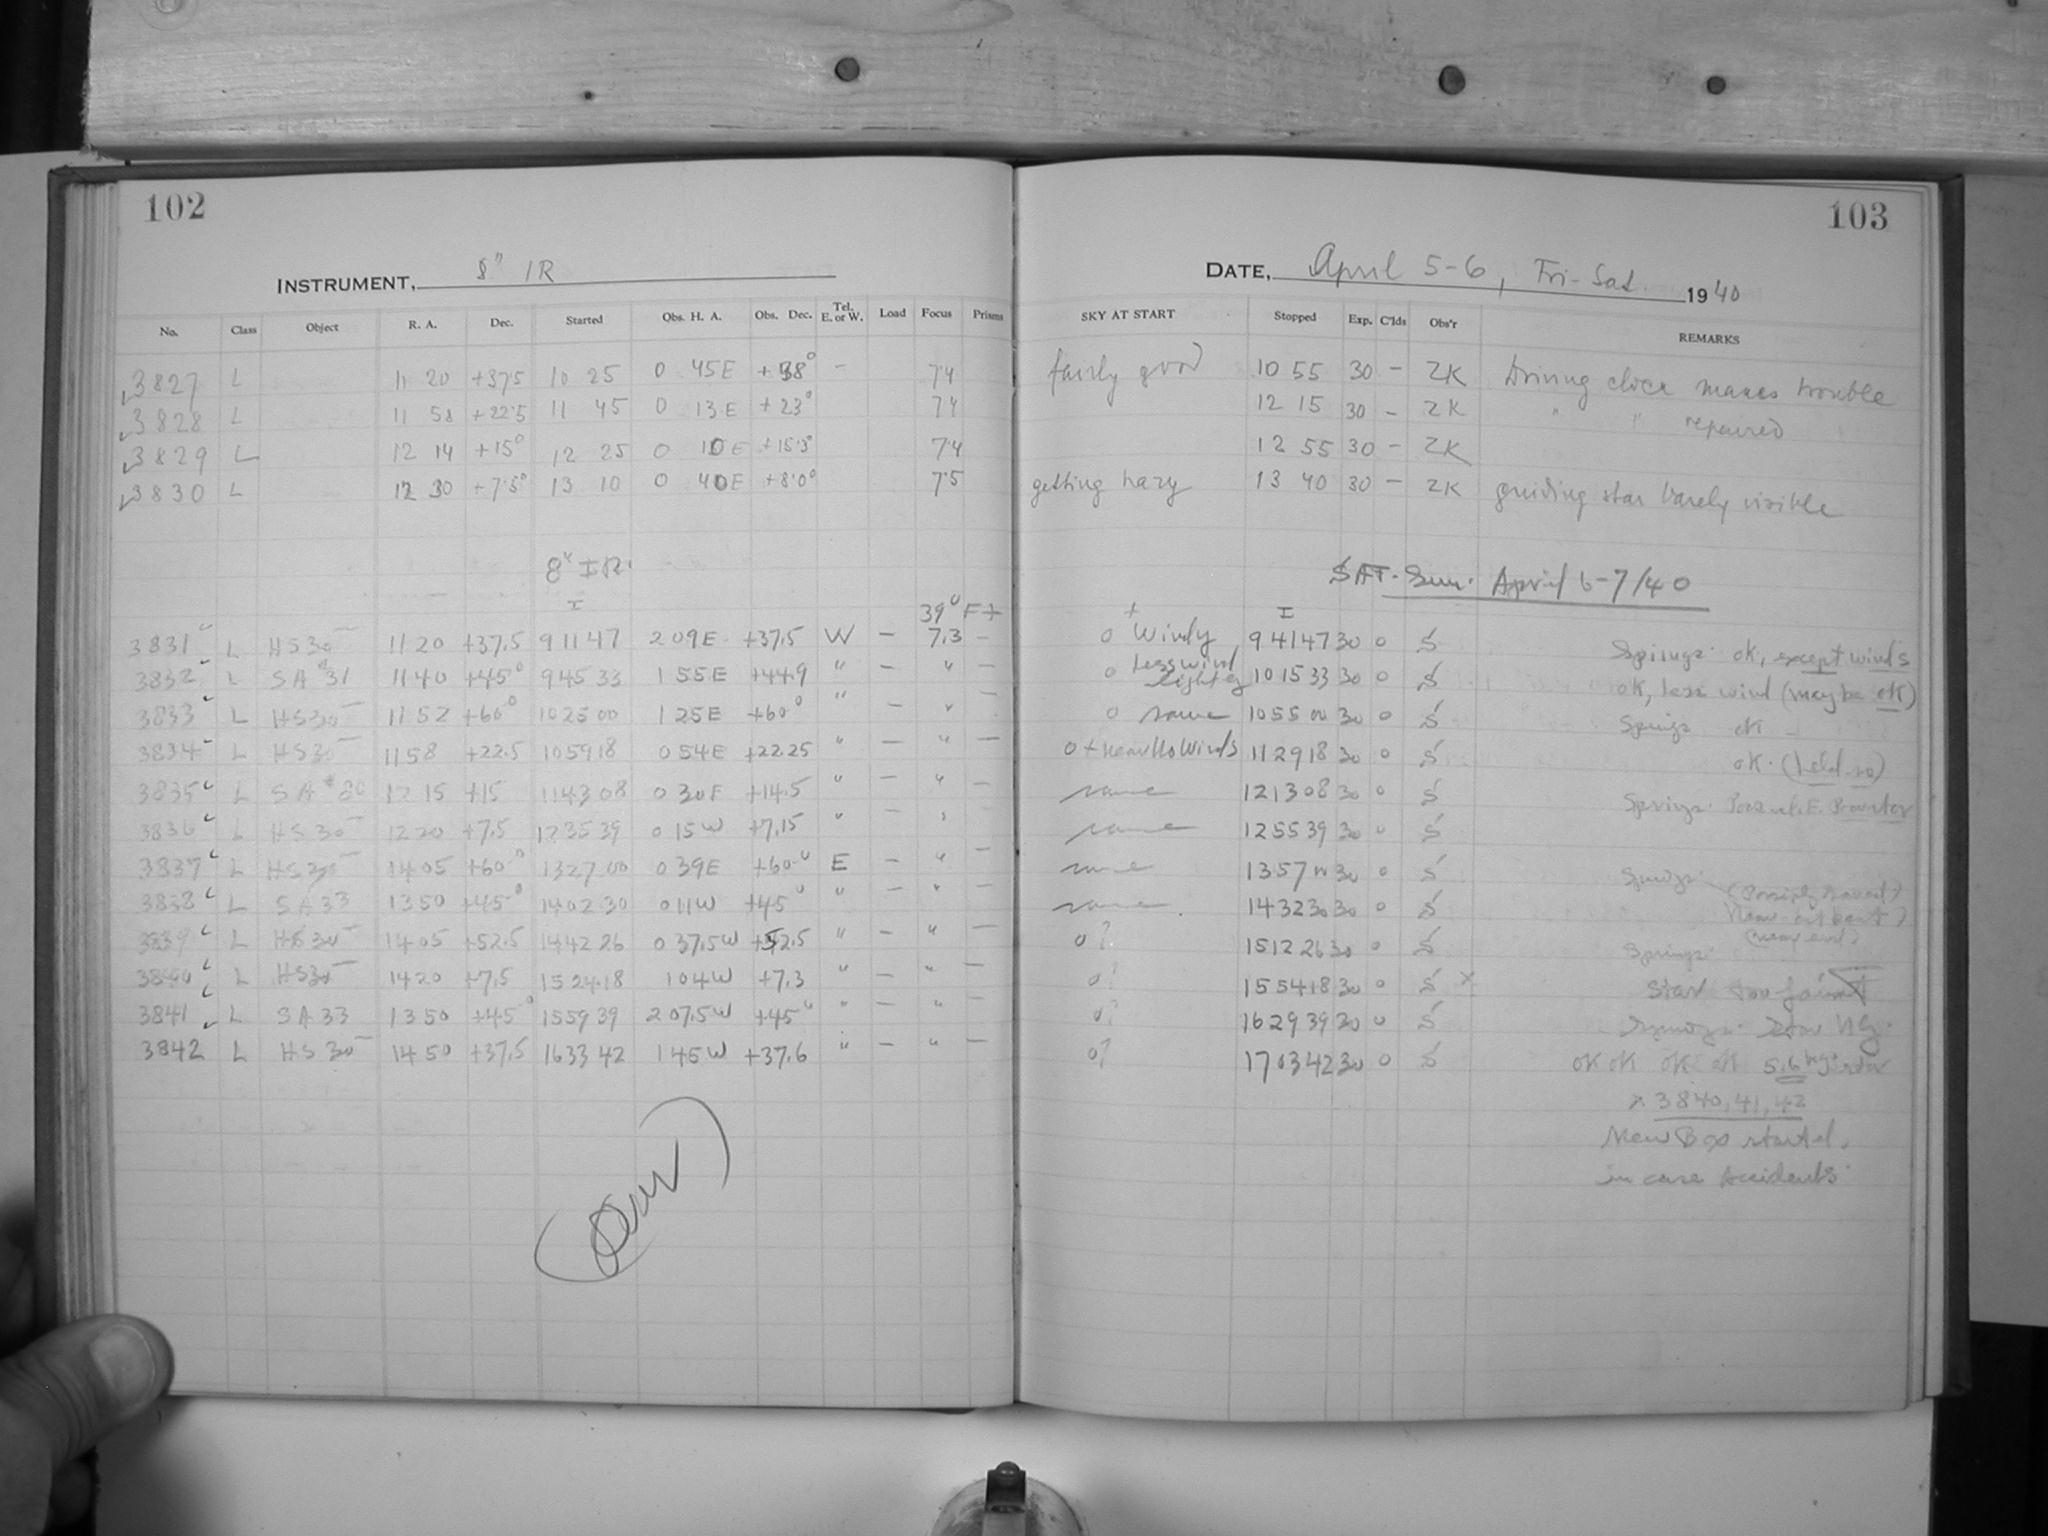 102
INSTRUMENT, 8" IR
No. Class Object R. A. Dec. Started Obs. H. A. Obs. Dec. Tel. E. or W. Load Focus Prisms
3827 L 11 20 +37.5 10 25 0 45E +38° - 7.4
3828 L 11 58 +22.5 11 45 0 13E +23° 7.4
3829 L 12 14 +15° 12 25 0 10E +15.3° 7.4
3830 L 12 30 +7.5° 13 10 0 40E +8.0° 7.5
8" IR.
I
39° F +
3831 L HS30 11 20 +37.5 9 11 47 2 09E +37.5 W - 7.3 -
3832 L SA 31 11 40 +45° 9 45 33 1 55E +44.9 " - " -
3833 L HS30 11 52 +60° 10 25 00 1 25E +60° " - " -
3834 L HS30 11 58 +22.5 10 59 18 0 54E +22.25 " - " -
3835 L 12 15 +15 11 43 08 0 30E +14.5 " - " -
3836 L HS30 12 20 +7.5 0 15W +7.15 " - "
3837 L HS30 14 05 +60° 13 27 00 0 39E +60° E - " -
3838 L SA 33 13 50 +45° 14 02 30 0 11W +45° " - " -
3839 L HS30 14 05 +52.5 14 42 26 0 37.5W +52.5 " - " -
3840 L HS30 14 20 +7.5 15 24 18 1 04W +7.3 " - " -
3841 L SA 33 13 50 +45° 15 59 39 2 07.5W +45° " - " -
3842 L HS30 14 50 +37.5 16 33 42 1 45W +37.6 " - " -
103
DATE, April 5-6, Fri-Sat. 1940
SKY AT START Stopped Exp. C'lds Obs'r REMARKS
fairly good 10 55 30 - ZK Driving clock makes trouble
12 15 30 - ZK " " repaired
12 55 30 - ZK
getting hazy 13 40 30 - ZK guiding star barely visible
SAT. Sun. April 6-7/40
+ I
0 Windy 9 41 47 30 0 S Springs. ok, except winds
0 Less wind 10 15 33 30 0 S OK, less wind (maybe OK)
0 same 10 55 00 30 0 S Springs ok
0 + near No Winds 11 29 18 30 0 S OK.
same 12 13 08 30 0 S Springs.
same 12 55 39 30 0 S
same 13 57 00 30 0 S
same 14 32 30 30 0 S
0? 15 12 26 30 0 S Springs.
0? 15 54 18 30 0 S x Star too faint
0? 16 29 39 30 0 S
0? 17 03 42 30 0 S OK OK OK OK 5.6 mg. star
x 3840, 41, 42
New Box started.
in case Accidents